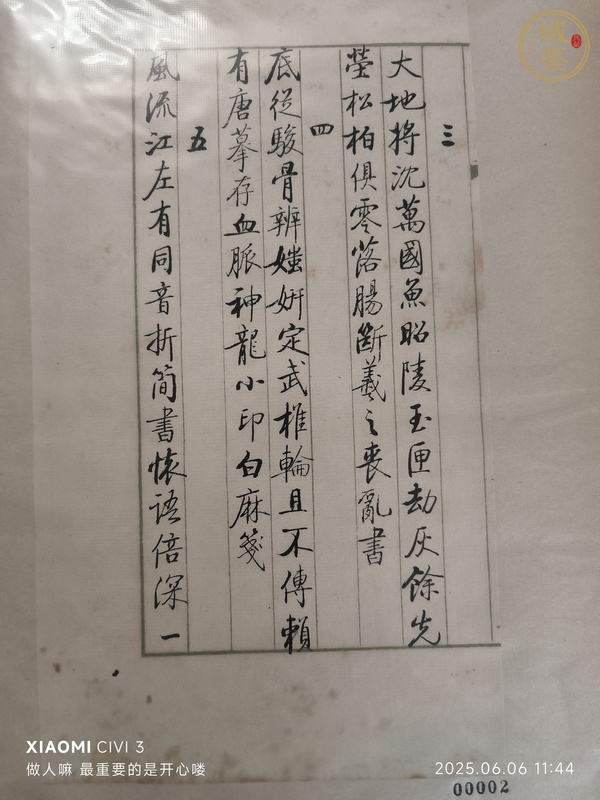 三
大地將沈萬國魚昭陵玉匣劫灰餘先
塋松柏俱零落腸斷羲之喪亂書
四
底從駿骨辨媸妍定武椎輪且不傳賴
有唐摹存血脈神龍小印白麻箋
五
風流江左有同音折簡書懷語倍深一
XIAOMI CIVI 3
做人嘛 最重要的是开心喽
2025.06.06 11:44
00002